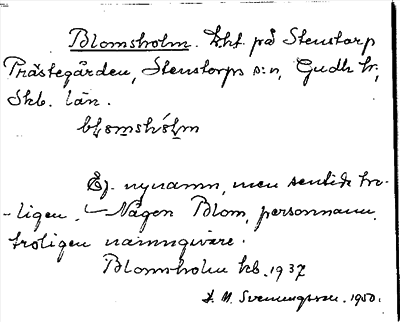 Blomsholm. Lht. på Stenstorp
Prästegården, Stenstorps s:n, Gudh. hr,
Skb. län.
Ej. nynamn, men sentida tro-
-ligen. Någon Blom, personnamn,
troligen namngivare.
Blomsholm kb. 1937
A. M. Svenungsson. 1950.